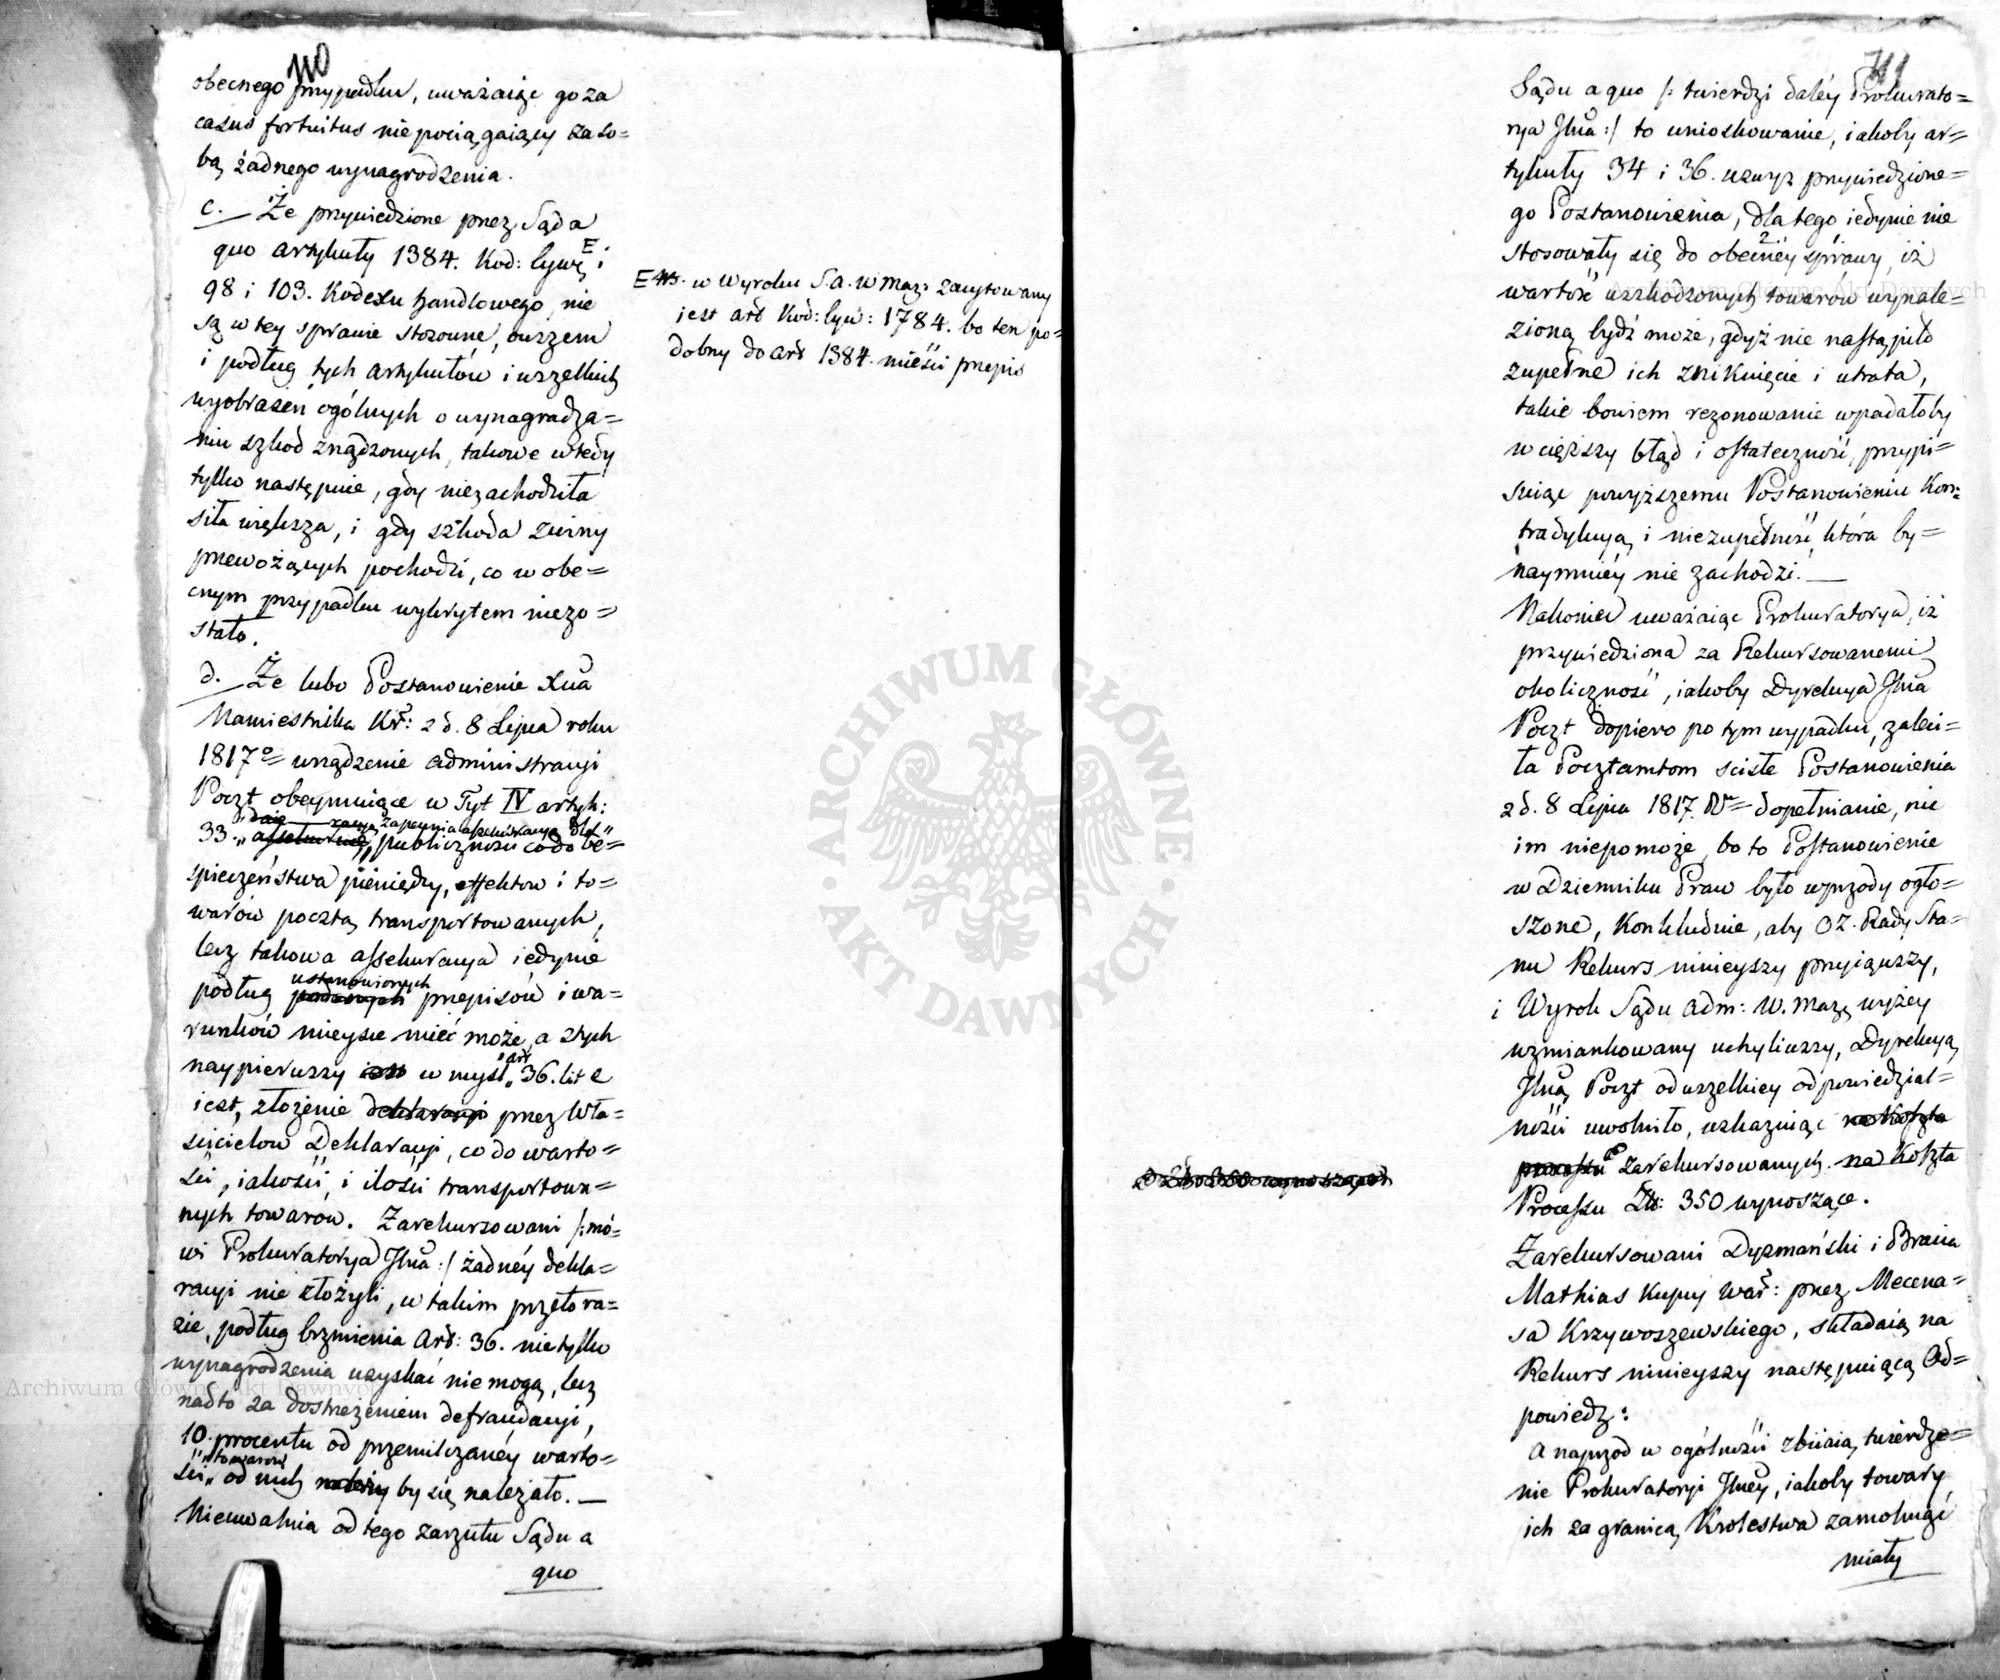 110
obecnego przypadku, uważaiąc go za
casus fortuitus nie pociągaiący za so=
bą żadnego wynagrodzenia.
c. Że przywiedzione przez Sąd a
quo artykuły 1384. Kod: Cywę E i
98 i 103. Kodexu handlowego, nie
są w tey sprawie stosowne, owszem
i podług tych artykułów i wszelkich
wyobrażeń ogólnych o wynagradza=
niu szkod zrządzonych, takowe wtedy
tylko następuie, gdy niezachodziła
siła większa, i gdy szkoda z winy
przewożących pochodzi, co w obe=
cnym przypadku wykrytem niezo=
stało.
d. Że lubo Postanowienie Xcia
Namiestnika Kr: z d. 8 Lipca roku
1817o urządzenie administracyi
Poczt obeymuiące w Tyt IV artyk:
33. zapewnia assekuracyą dla
publiczności co do be=
spieczeństwa pieniędzy, effektow i to=
warów pocztą transportowanych,
lecz takowa assekuracya iedynie
ustanowionych
podług przepisów i wa=
runków mieysce mieć może, a z tych
naypierwszy w myśl art 36. lit e
iest, złożenie deklaracyi przez Wła=
ścicielow Deklaracyi, co do warto=
ści, iakości, i ilości transportowa=
nych towarow. Zarekursowani /:mó=
wi Prokuratorya Jlna:/ żadnéy dekla=
racyi nie złożyli, w takim przeto ra=
zie, podług brzmienia Art: 36. nietylko
wynagrodzenia uzyskać nie mogą, lecz
nadto za dostrzeżeniem defraudacyi,
10. procentu od przemilczanéy warto=
towarów
ści od nich by się należało. —
Nieuwalnia od tego zarzutu Sądu a
quo
E NB. w Wyroku S. a. w Maz: zacytowany
iest art Kod: Cyw: 1784. bo ten po=
dobny do art 1384. mieści przepis
111
Sądu a quo /: twierdzi daléy Prokurato=
rya Jlna:/ to unioskowanie, iakoby ar=
tykuły 34 i 36. wzwyż przywiedzione=
go Postanowienia, dla tego iedynie nie
stosowały się do obecnéy sprawy, iż
wartość uszkodzonych towarów wynale=
zioną bydź może, gdyż nie nastąpiło
zupełne ich zniknięcie i utrata,
takie bowiem rezonowanie wpadałoby
w cięższy błąd i ostateczność, przypi=
suiąc powyższemu Postanowieniu Kon=
tradykcyą i niezupełność, która by=
naymniéy nie zachodzi. —
Nakoniec uważaiąc Prokuratorya, iż
przywiedziona za Rekursowanemi
okoliczność, iakoby Dyrekcya Jlna
Poczt dopiero po tym wypadku, zaleci=
ła Pocztamtom scisłe Postanowienia
z d. 8 Lipca 1817. Ru dopełnianie, nic
im niepomoże, bo to Postanowienie
w Dzienniku Praw było wprzody ogło=
szone, Konkluduie, aby OZ. Rady Sta=
nu Rekurs ninieyszy przyiąwszy,
i Wyrok Sądu adm: W. Maz, wyżey
wzmiankowany uchyliwszy, Dyrekcyą
Jlną Poczt od wszelkiey odpowiedzial=
ności uwolniło, wskazuiąc na Koszta
processu Zarekursowanych. na Koszta
Processu Zł: 350 wynoszące.
Zarekursowani Dyzmański i Bracia
Mathias Kupcy War: przez Mecena=
sa Krzywoszewskiego, składaią na
Rekurs ninieyszy następuiącą Od=
powiedz:
a naprzod w ogólności zbiiaią twierdze=
nie Prokuratoryi Jlnéy, iakoby towary
ich za granicą Krolestwa zamoknąć
miały
Archiwum Główne Akt Dawnych
Archiwum Główne Akt Dawnych
ARCHIWUM GŁÓWNE · AKT DAWNYCH ·